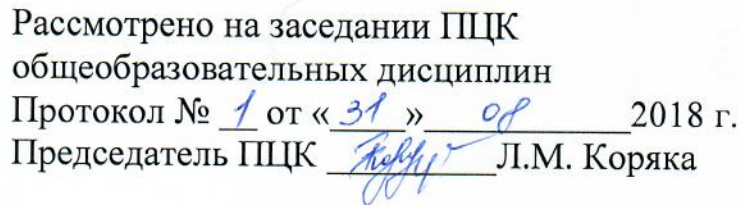 Рассмотрено на заседании ПЦК
общеобразовательных дисциплин
Протокол № 1 от «31» 08 2018 г.
Председатель ПЦК Л.М. Коряка